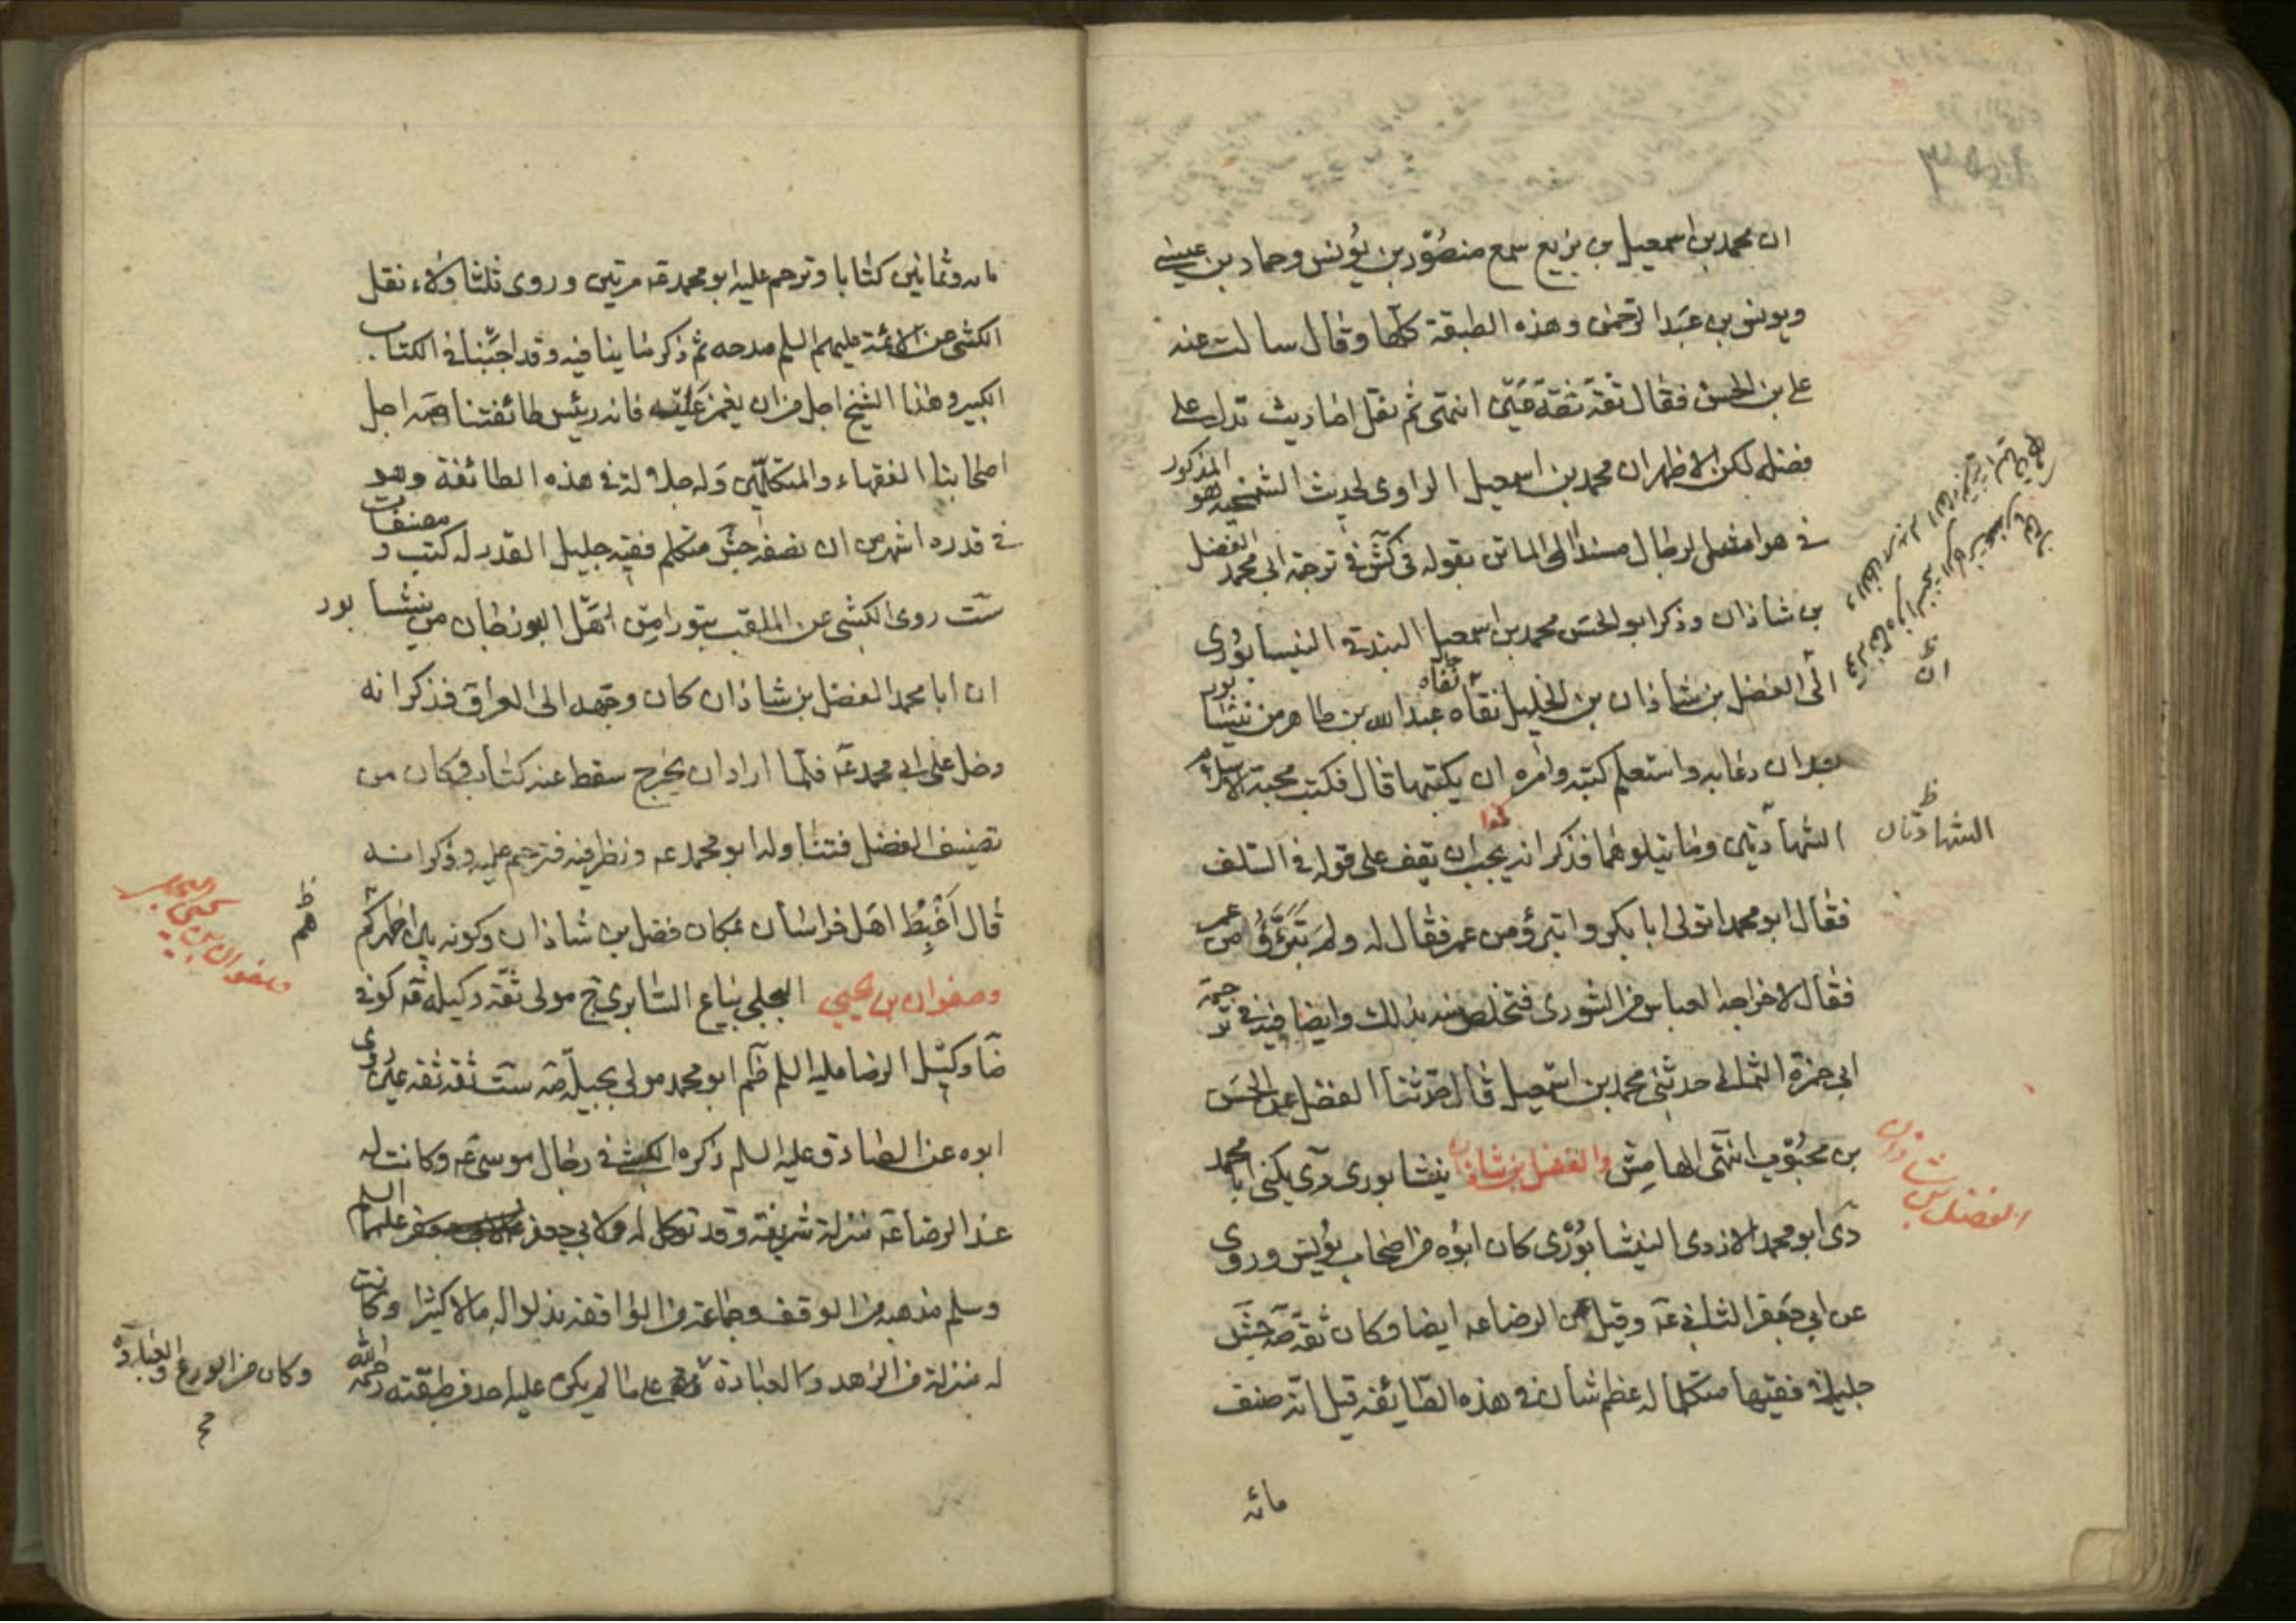 ان محمد بن اسمعيل بن بزيع سمع منصور بن يونس وحماد بن عيسى
ويونس بن عبد الرحمن وهذه الطبقة كلها وقال سالت عنه
على بن الحسن فقال ثقة ثقة عين انتهى ثم نقل احاديث تدل على
فضله لكن الاظهر ان محمد بن اسمعيل الراوى لحديث المذكور هو
فى ترجمة ابى محمد الفضل
بن شاذان وذكر ابو الحسن محمد بن اسمعيل البندقى النيسابورى
ان الفضل بن شاذان بن الخليل نفاه عبد الله بن طاهر من نيشابور
بعد ان دعا به واستعلم كتبه وامره ان يكتبها قال فكتب تحته الاسلام
الشهادتين وما يتلوهما فذكر انه يحب ان يقف على قوله فى السلف
الشهادتان ظ
فقال ابو محمد اتولى ابا بكر واتبرؤ من عمر فقال له ولم تتبرؤ من عمر
فقال لاخراجه العباس من الشورى فتخلص منه بذلك وايضا فيه فى ترجمة
ابى حمزة الثمالى حدثنى محمد بن اسمعيل قال حدثنا الفضل عن الحسن
بن محبوب انتهى الهامش والفضل بن شاذان نيشابورى دى يكنى ابا محمد
الفضل بن شاذان
دى ابو محمد الازدى النيشابورى كان ابوه من اصحاب يونس وروى
عن ابى جعفر الثانى عه وقيل عن الرضا عه ايضا وكان ثقة صه جش
جليلا فقيها متكلما له عظم شان فى هذه الطايفه قيل انه صنف
مائه
مائه وثمانين كتابا وترحم عليه ابو محمد عه مرتين وروى ثلثا ولاء نقل
الكشى عن الائمة عليهم السلم مدحه ثم ذكر ما ينافيه وقد اجبنا فى الكتاب
الكبير وهذا الشيخ اجل من ان يغمز عليه فانه رئيس طائفتنا صه اجل
اصحابنا الفقهاء والمتكلمين وله جلالة فى هذه الطائفة وهو
فى قدره اشهر من ان نصفه جش متكلم فقيه جليل القدر له كتب ومصنفات
ست روى الكشى عن الملقب بتورا من اهل البوزجان من نيشابور
ان ابا محمد الفضل بن شاذان كان وجهه الى العراق فذكر انه
دخل على ابى محمد عه فلما اراد ان يخرج سقط عنه كتاب وكان من
تصنيف الفضل فتناوله ابو محمد عه ونظر فيه فترحم عليه وذكر انه
قال اغبط اهل خراسان بمكان فضل بن شاذان وكونه بين اظهركم
هم ظ
وصفوان بن يحيى البجلى بياع السابرى مولى ثقة وكيله كوفى
صفوان بن يحيى
ضا وكيل الرضا عليه السلم ظم ابو محمد مولى بجيلة صه ست ثقه ثقه عين روى
ابوه عن الصادق عليه السلم ذكره الكشى فى رجال موسى عه وكانت له
عند الرضا عه منزلة شريفه وقد توكل له ولابى جعفر عليهما السلم
وسلم مذهبه من الوقف وجماعة من الواقفه بذلوا له مالا كثيرا وكانت
له منزلة من الزهد والعبادة على ما لم يكن عليه احد من طبقته رحمه الله
وكان من الورع والعبادة